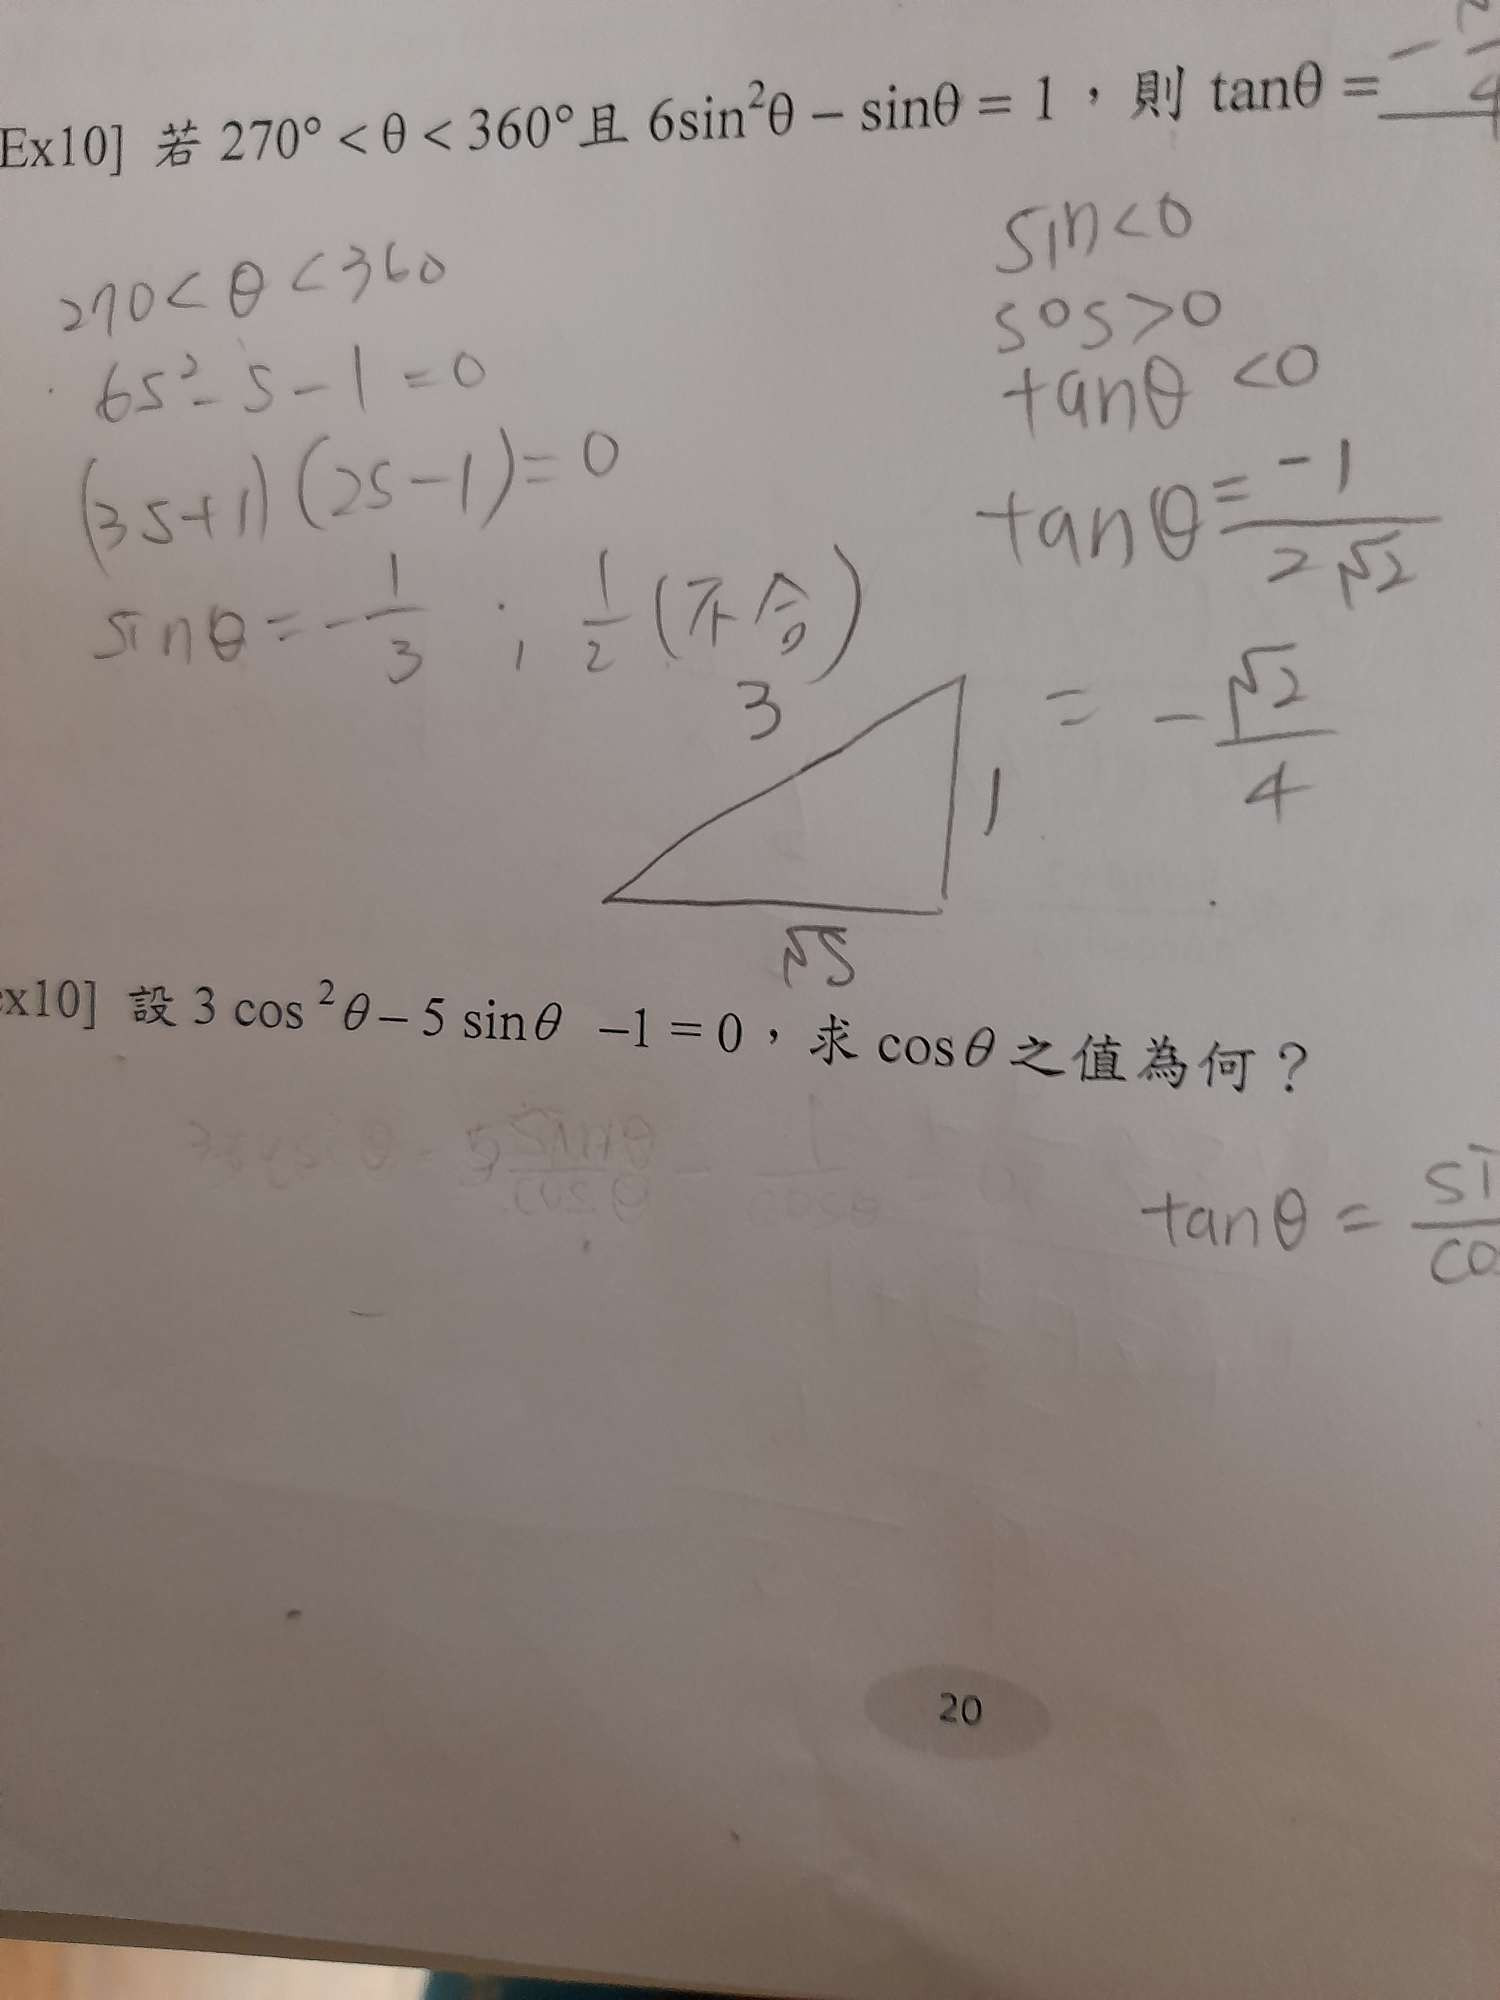 Ex10] 若 270° < θ < 360° 且 6sin²θ – sinθ = 1，則 tanθ = –
4
270 < θ < 360
6s² - s - 1 = 0
(3s+1)(2s-1) = 0
sinθ = -1/3 ; 1/2 (不合)
sin<0
sos>0
tanθ <0
tanθ = -1/2√2
= -√2/4
3
1
√8
ex10] 設 3 cos²θ – 5 sinθ –1 = 0，求 cosθ 之值為何？
tanθ = si/co
20